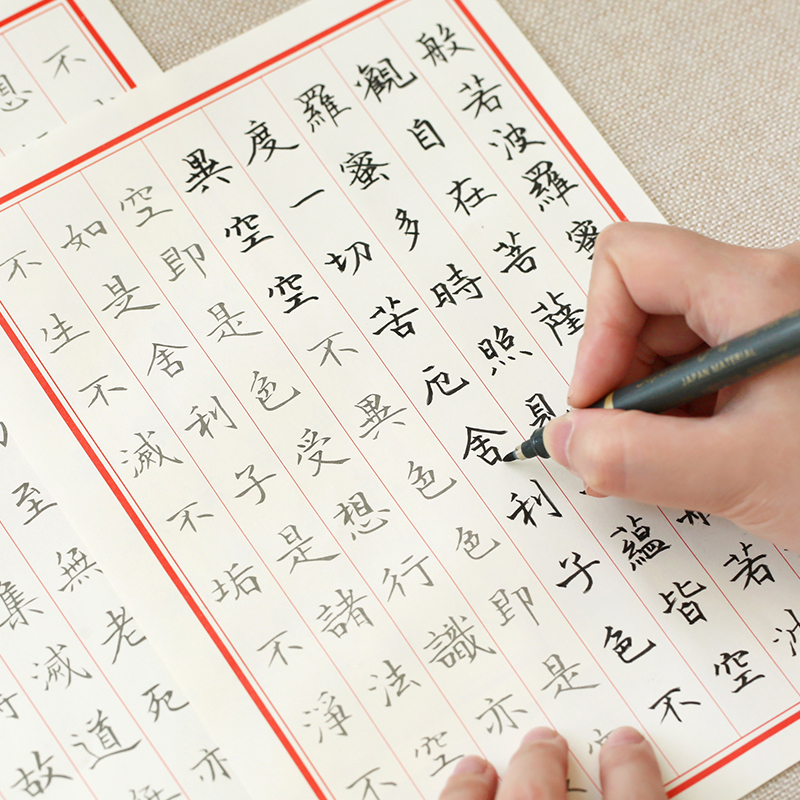 般若波羅蜜
觀自在菩薩般若波
羅蜜多時照見蘊皆空
度一切苦厄舍利子色不
異空空不異色色即是空
空即是色受想行識亦
如是舍利子是諸法空
不生不滅不垢不淨不
不
想
至無老死亦
集滅道無
故
JAPAN MATERIAL